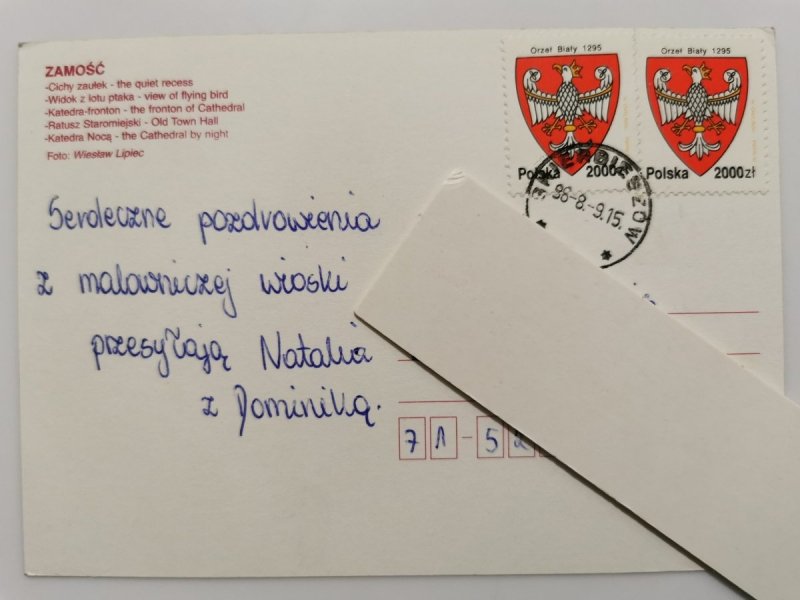 ZAMOŚĆ
-Cichy zaułek - the quiet recess
-Widok z lotu ptaka - view of flying bird
-Katedra-fronton - the fronton of Cathedral
-Ratusz Staromiejski - Old Town Hall
-Katedra Nocą - the Cathedral by night
Foto: Wiesław Lipiec
Orzeł Biały 1295
Polska 2000
Orzeł Biały 1295
Polska 2000zł
SKIERBIESZÓW
96-8.-9.15.
Serdeczne pozdrowienia
z malowniczej wioski
przesyłają Natalia
z Dominiką.
71-52